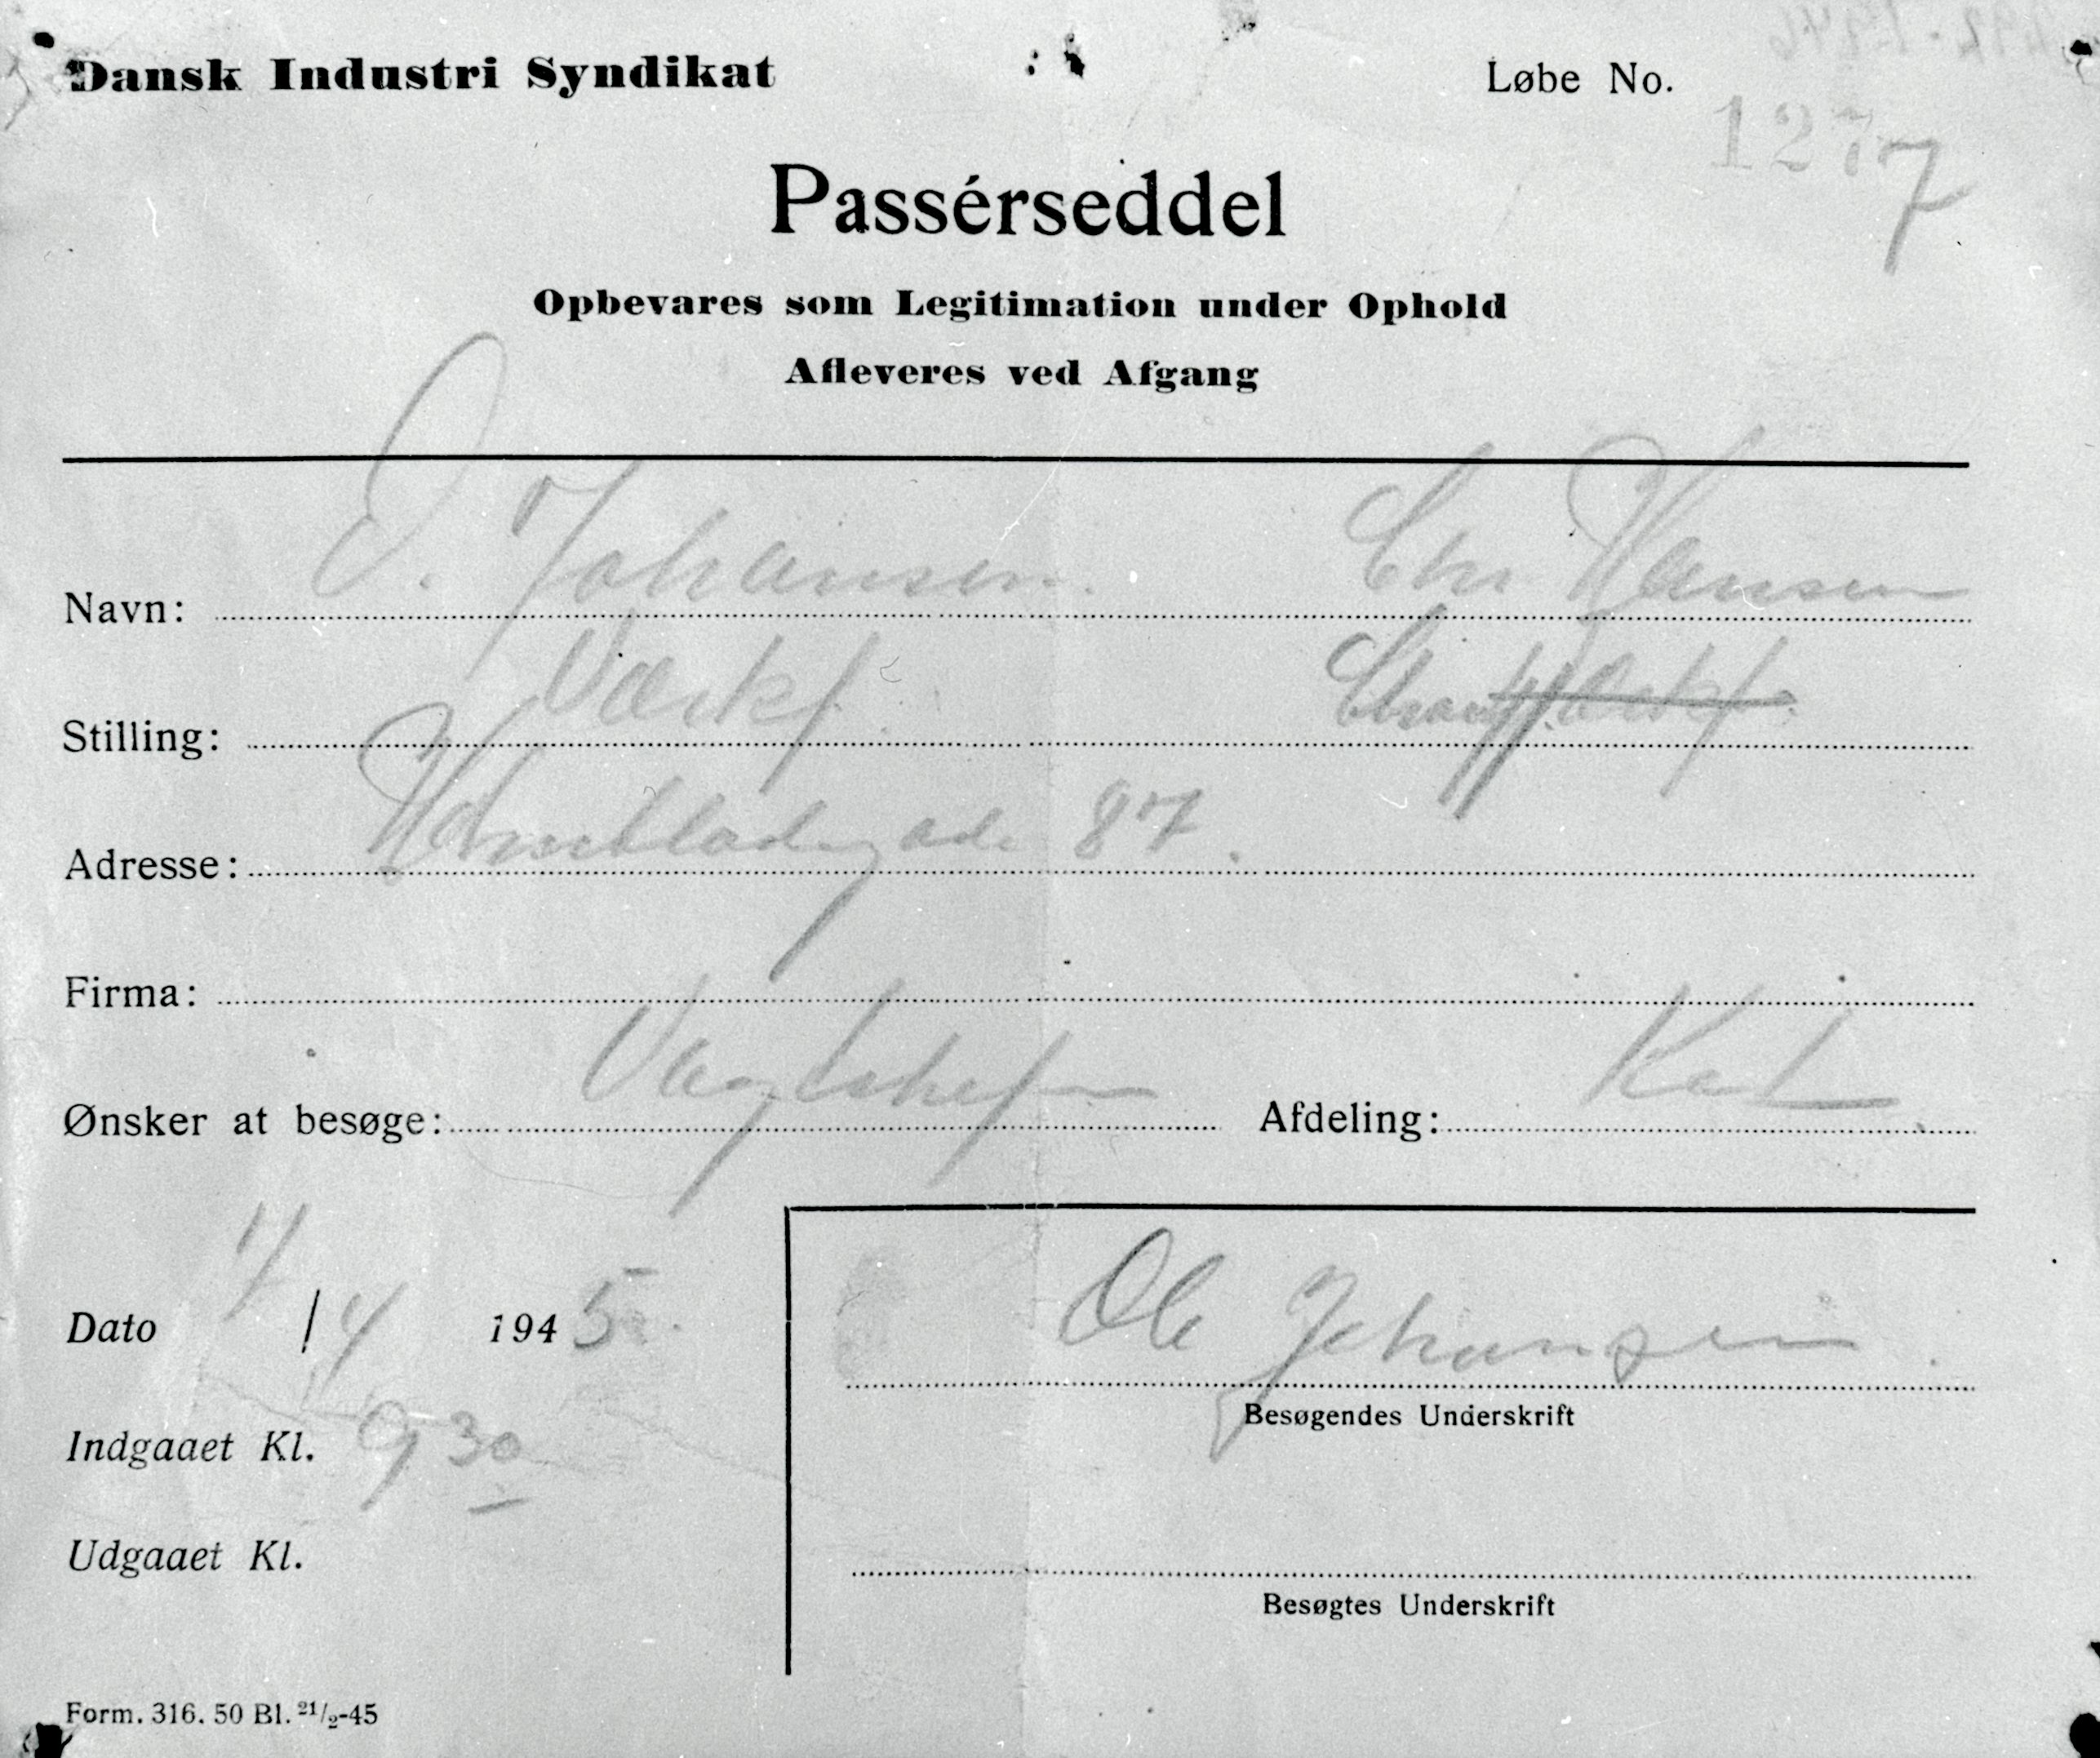 Dansk Industri Syndikat Løbe No.
1277
Passérseddel
Opbevares som Legitimation under Ophold
Afleveres ved Afgang
Navn: O. Johansen. Chr Hansen
Stilling: Værkf. Chauff. Værkf.
Adresse: Holmbladsgade 87.
Firma:
Ønsker at besøge: Vagtchef Afdeling: Kat
Dato 7/4 1945.
Indgaaet Kl. 9 30
Udgaaet Kl.
Ole Johansen.
Besøgendes Underskrift
Besøgtes Underskrift
Form. 316. 50 Bl. 21/2-45